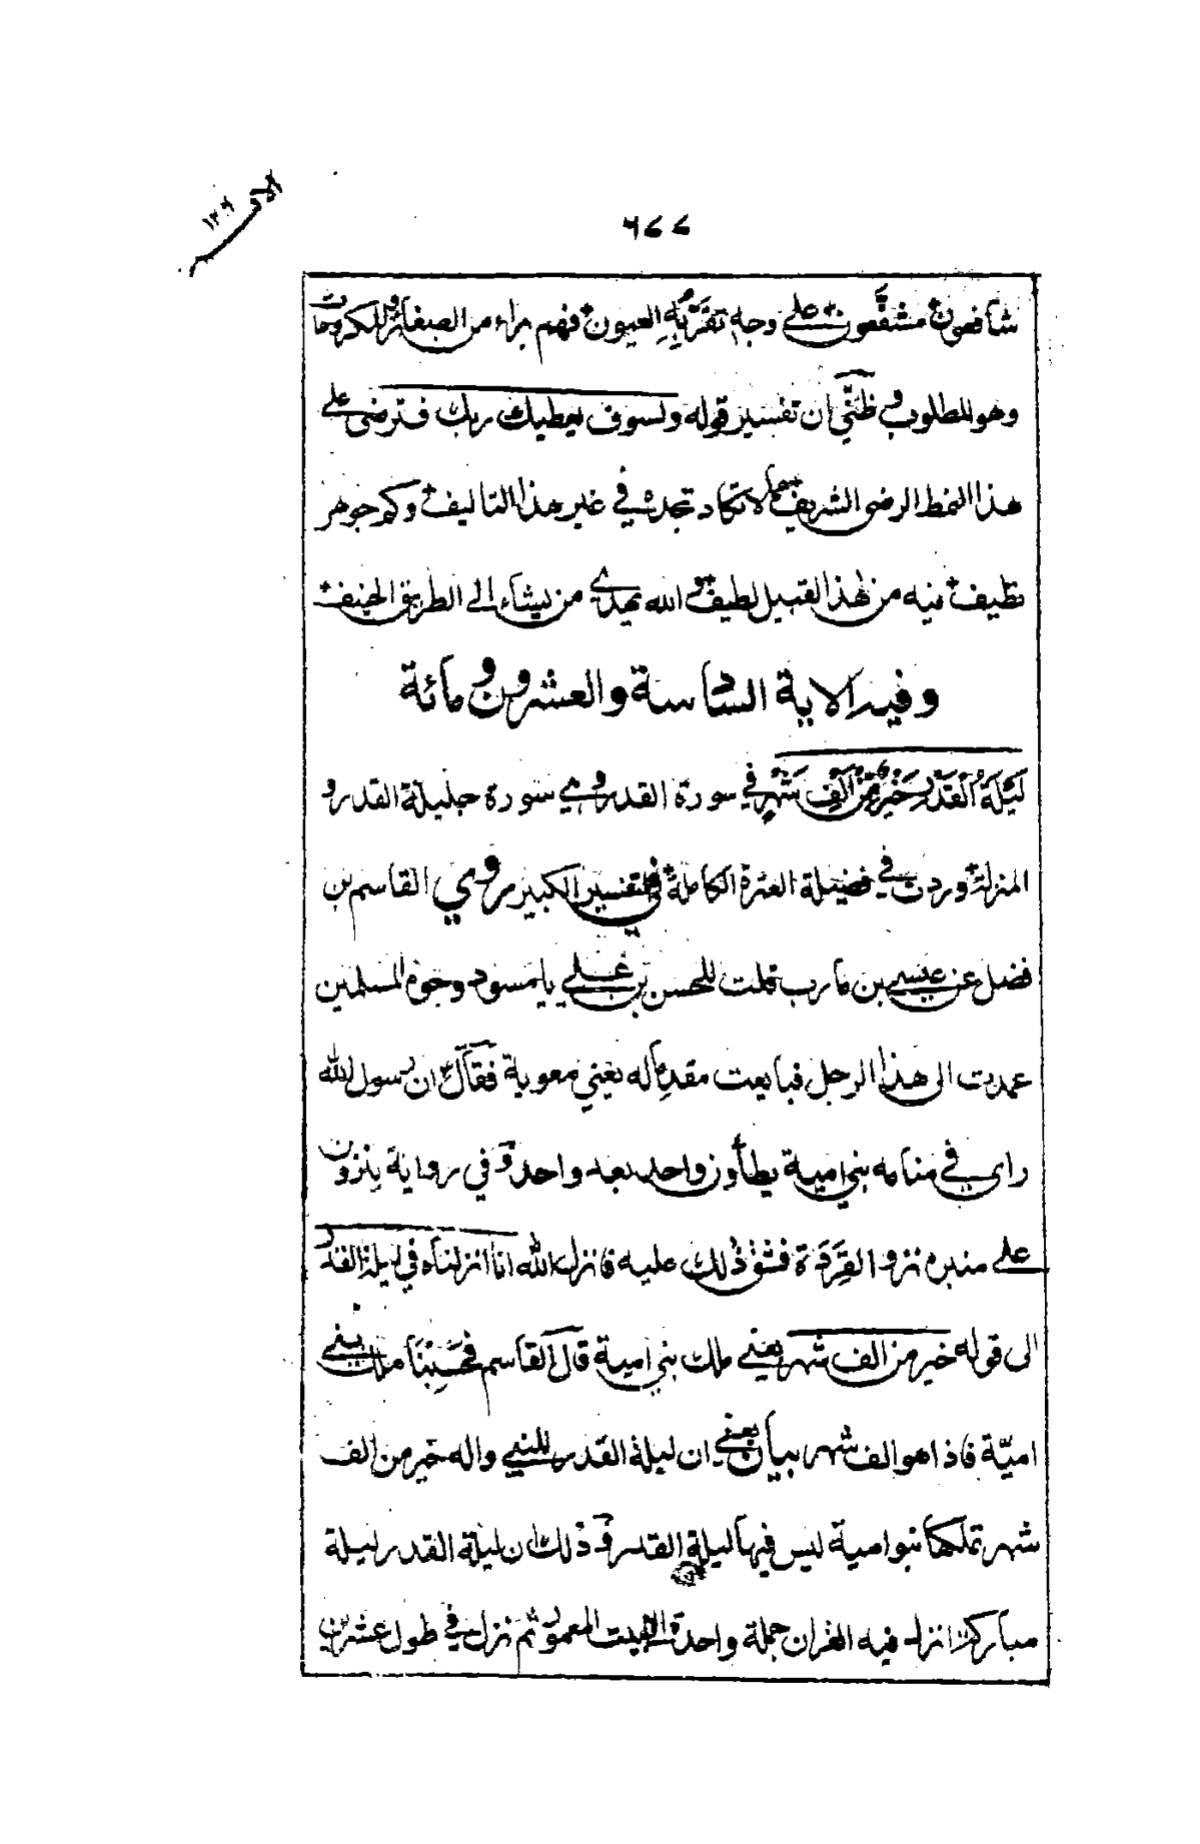 الآية ١٢٦
٦٧٧
شافعون مشفعون على وجه تقر به العيون فهم براء من الصغائر والمكروهات
وهو المطلوب وظني ان تفسير قوله ولسوف يعطيك ربك فترضى على
هذا النمط الرضي الشريف مما لا تكاد تجده في غير هذا التاليف وكم جوهر
نظيف فيه من هذا القبيل لطيف والله يهدي من يشاء الى الطريق الحنيف
وفيه الاية السادسة والعشرون ومائة
لَيْلَةُ الْقَدْرِ خَيْرٌ مِّنْ اَلْفِ شَهْرٍ في سورة القدر وهي سورة جليلة القدر و
المنزلة وردت في فضيلة العترة الكاملة ففي التفسير الكبير روي القاسم بن
فضل عن عيسى بن مارب قلت للحسن بن علي يا مسود وجوه المسلمين
عمدت الى هذا الرجل فبايعت مقدما له يعني معوية فقال ان رسول الله
راى في منامه بني امية يطأون واحد بعد واحد وفي رواية ينزون
على منبره نزو القِرَدَة فشق ذلك عليه فانزل الله انا انزلناه في ليلة القدر
الى قوله خير من الف شهر يعني ملك بني امية قال القاسم فحَسَبْنَا ملك بني
اميّة فاذا هو الف شهر بيان يعني ان ليلة القدر للنبي واله خير من الف
شهر تملكها بنو امية ليس فيها ليلة القدر وذلك ان ليلة القدر ليلة
مباركة انزل فيه القران جملة واحدة الى البيت المعمور ثم نزل في طول عشرين